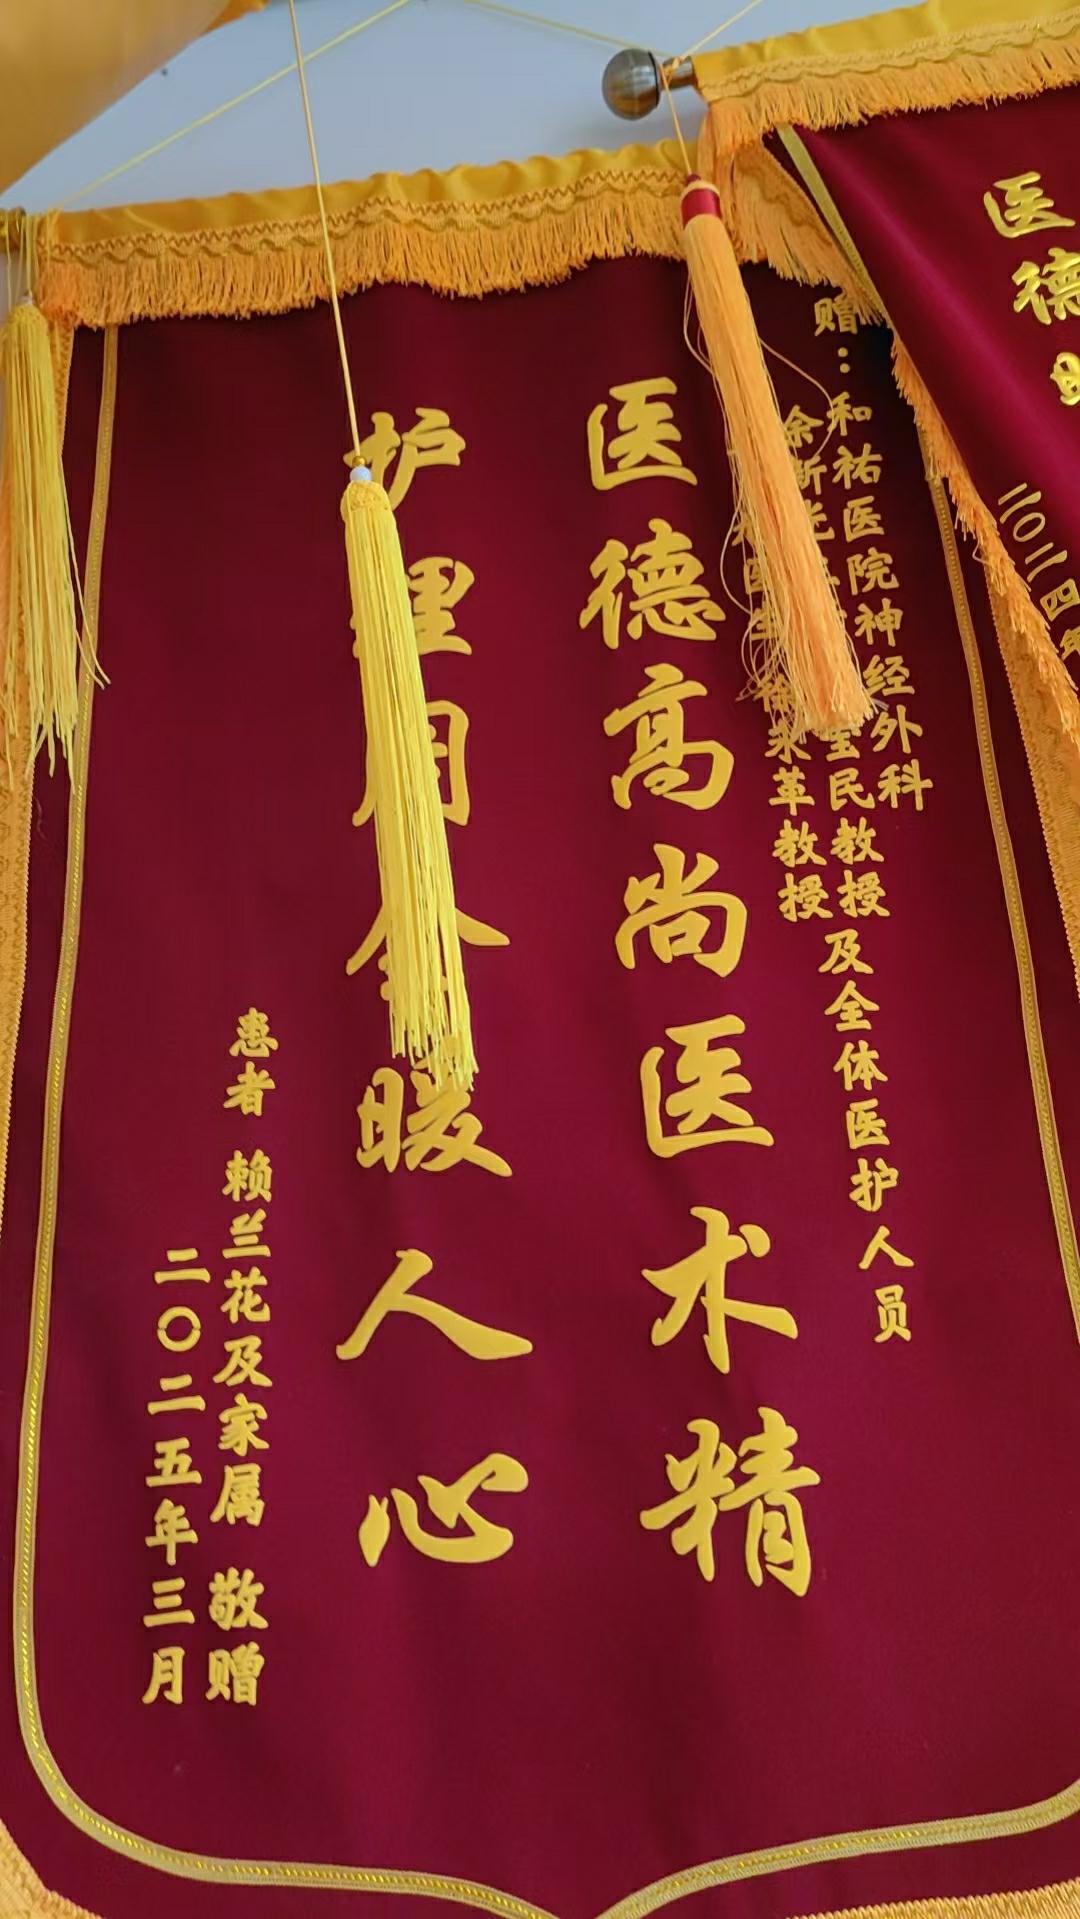 赠：和祐医院神经外科
余新光 民教授及全体医护人员
医生 徐永革教授
医德高尚医术精
护理周全暖人心
患者 赖兰花及家属 敬赠
二〇二五年三月
医德
二〇二四年